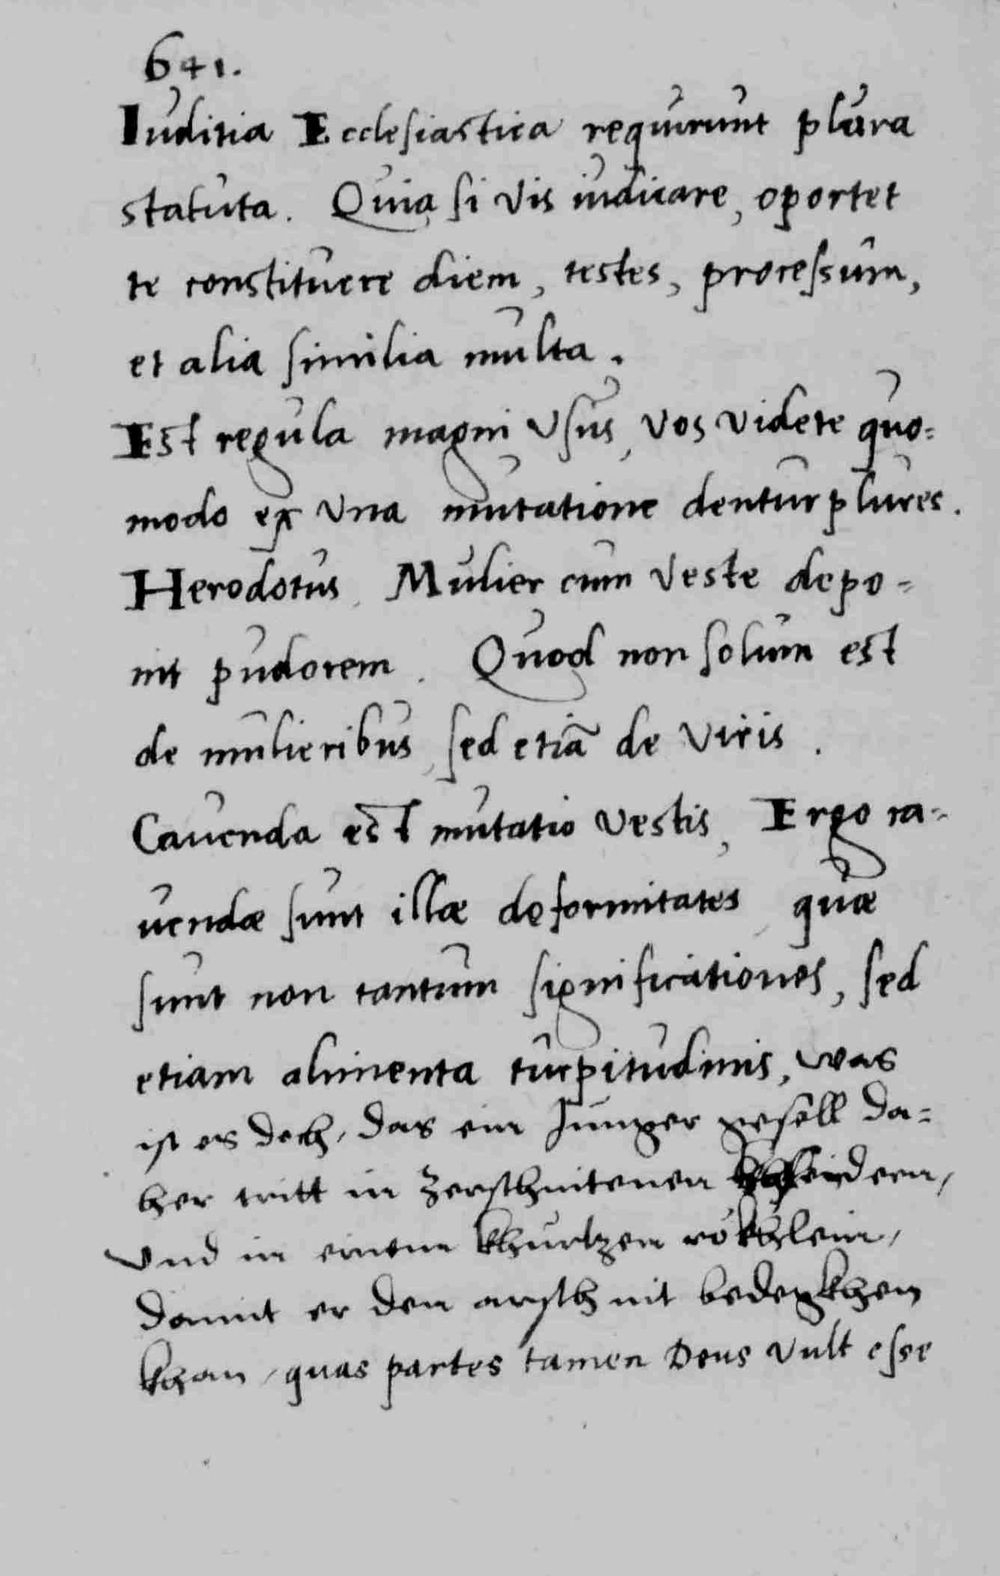 641.
Iuditia Ecclesiastica requirunt plura
statuta. Quia si vis iudicare, oportet
te constituere diem, testes, processum,
et alia similia multa.
Est regula magni usus, vos videte quo=
modo ex una mutatione dentur plures.
Herodotus, Mulier cum veste depo-
nit pudorem. Quod non solum est
de mulieribus, sed etiā de viris.
Cavenda est mutatio vestis, Ergo ca-
vendæ sunt illæ deformitates, quæ
sunt non tantum significationes, sed
etiam alimenta turpitudinis, was
ist es doch, das ein Junger gesell da=
her tritt in zerschnitenen khleidern,
vnd in einem khurtzen rökhlein,
damit er den arsch nit bedeckhen
khan, quas partes tamen Deus vult esse